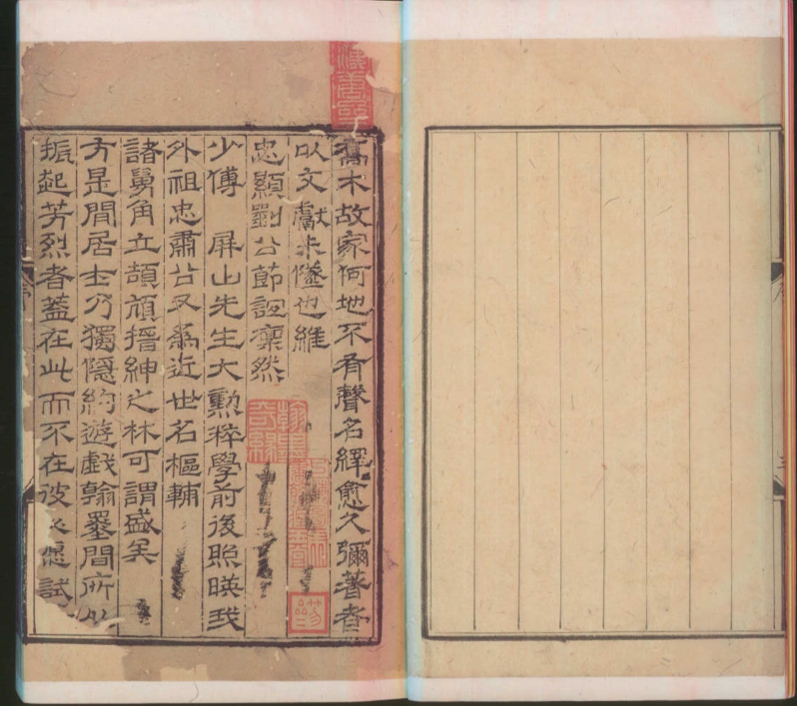 喬木故家何地不有聲名繹愈久彌著者
以文獻未墜也維
忠顯劉公節誼凜然
少傅 屏山先生大勳粹學前後照暎我
外祖忠肅公又爲近世名樞輔
諸舅角立頡頏搢紳之林可謂盛矣
方是閒居士乃獨隱約遊戲翰墨間所以
振起芳烈者蓋在此而不在彼試
翰墨奇緣
序